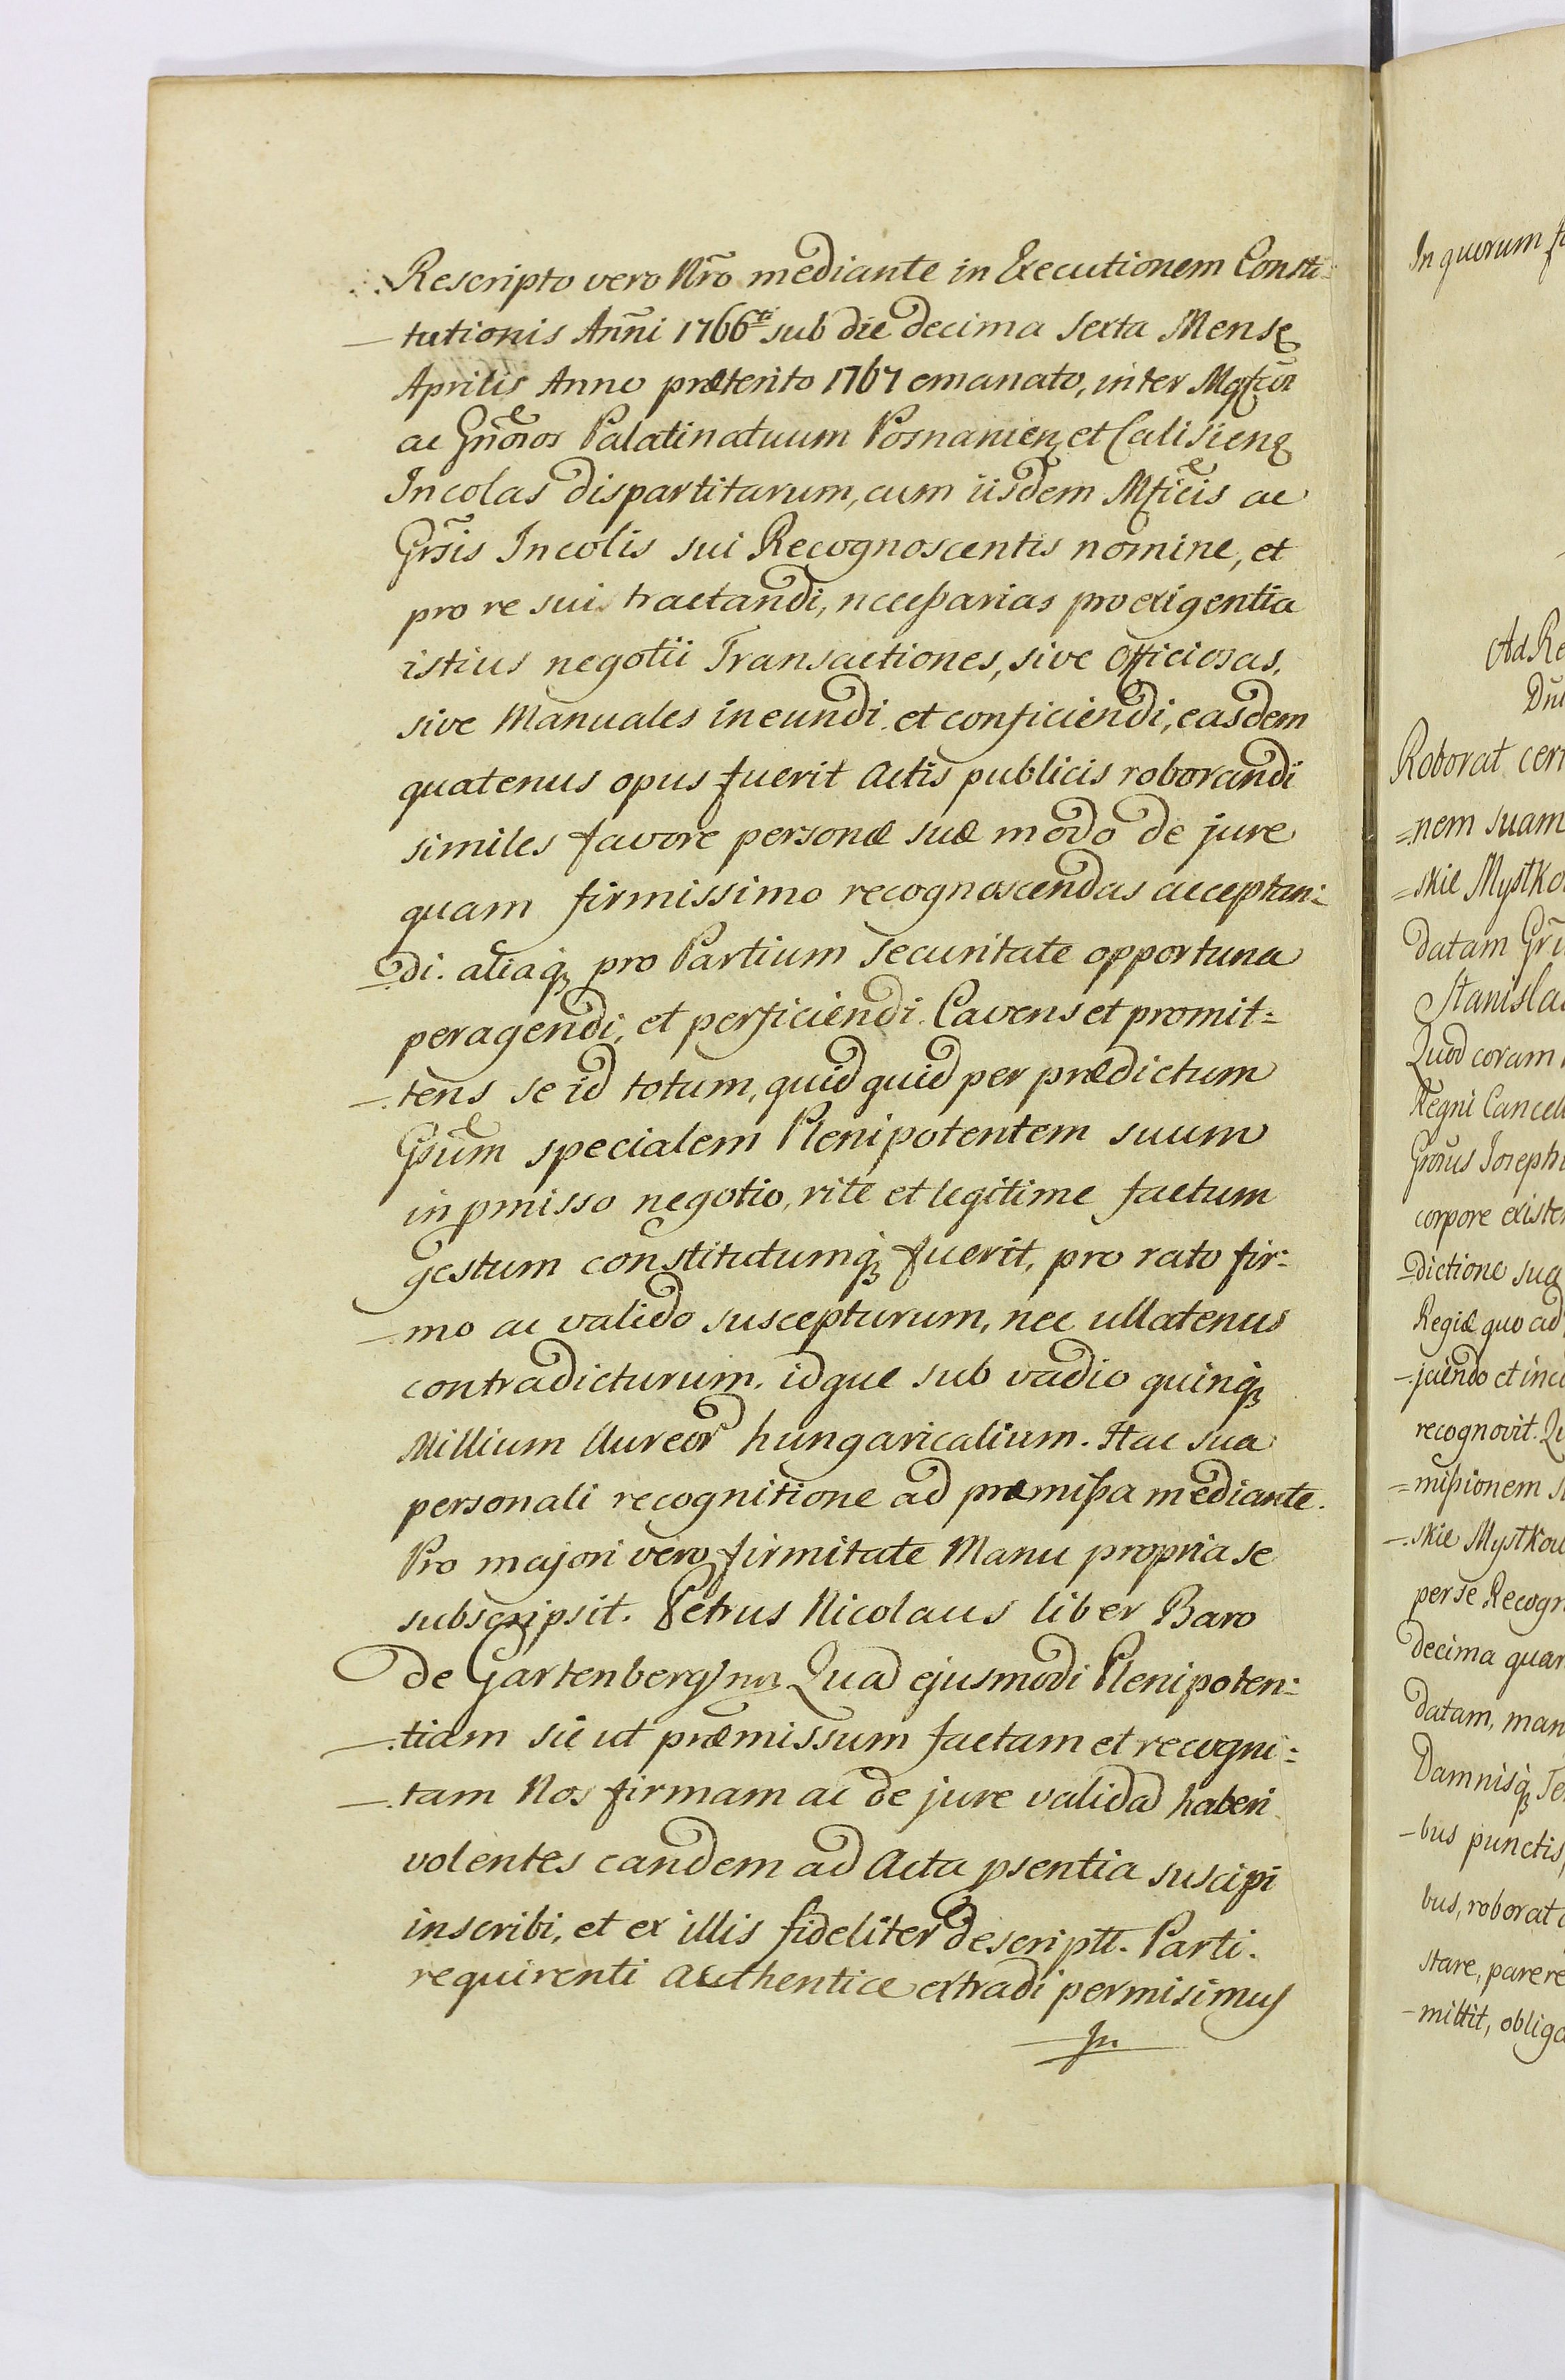 Rescripto vero Nr̃o mediante in Executionem Consti=
-tutionis Anñi 1766ti sub die decima sexta Mense
Aprilis Anno præterito 1767 emanato, inter
ac Gñosos Palatinatuum Posnanien et Calisien
Incolas dispartitarum, cum iisdem Mficis ac
Grsis Incolis sui Recognoscentis nomine, et
pro re sui tractandi, necessarias pro exigentia
istius negotii Transactiones, sive Officiosas,
sive Manuales ineundi et conficiendi, easdem
quatenus opus fuerit Actis publicis roborandi
similes favore personæ suæ modo de jure
quam firmissimo recognoscendas acceptan=
-di. aliaq, pro Partium securitate opportuna
peragendi, et perficiendi. Cavens et promit=
-tens se id totum, quid quid per prædictum
Gsum specialem Plenipotentem suum
in pmisso negotio, rite et legitime factum
gestum constitutumq, fuerit, pro rato fir=
-mo ac valido suscepturum, nec ullatenus
contradicturum. idque sub vadio quinq,
Millium Aureor hungaricalium. Hac sua
personali recognitione ad præmissa mediante.
Pro majori vero firmitate Manu propria se
subscripsit. Petrus Nicolaus liber Baro
de Gartenberg mp Quad ejusmodi Plenipoten=
-tiam sic ut præmissum factam et recogni=
-tam Nos firmam ac de jure validã haberi
volentes eandem ad Acta psentia suscipi
inscribi, et ex illis fideliter descriptt. Parti
requirenti authentice extradi permisimus
In
In quorum
Ad Re
Dñi
Roborat cer
=nem suam
=skie Mystko
datam Gr̃
Stanisla
Quod coram
Regni Cancell
Grosus Joseph
corpore existe
-dictione sua
Regiæ quo ad
-jciendo et inc
recognovit. Q
=missionem s
-skie Mystkow
per se Recogn
decima quar
datam, man
Damnisq, Te
-bus punctis,
bus, roborat
stare, parere
-mittit, obliga